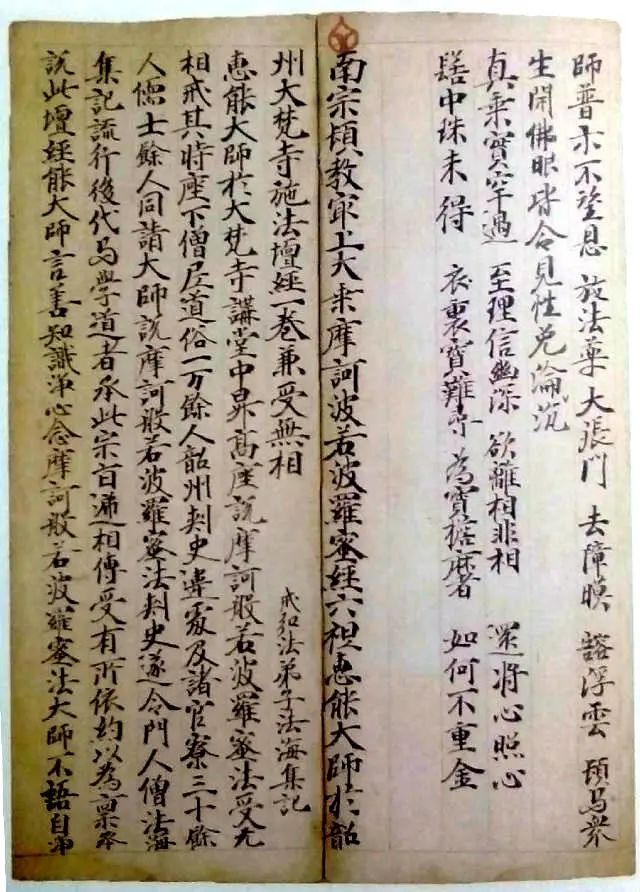 師普示不望恩 放法藥大張門 去障膜 豁浮雲 頓為眾
生開佛眼皆令見性免淪沉
真乘實罕遇 至理信幽深 欲離相非相 還將心照心
髻中珠未得 衣裏寶難尋 為實擔麻者 如何不重金
南宗頓教最上大乘摩訶波若波羅蜜經六祖惠能大師於韶
州大梵寺施法壇經一卷兼受無相
戒弘法弟子法海集記
惠能大師於大梵寺講堂中昇高座說摩訶般若波羅蜜法受无
相戒其時座下僧尼道俗一万餘人韶州刺史違處及諸官寮三十餘
人儒士餘人同請大師說摩訶般若波羅蜜法刺史遂令門人僧法海
集記流行後代与學道者承此宗旨遞相傳受有所依約以為稟承
說此壇經能大師言善知識淨心念摩訶般若波羅蜜法大師不語自淨